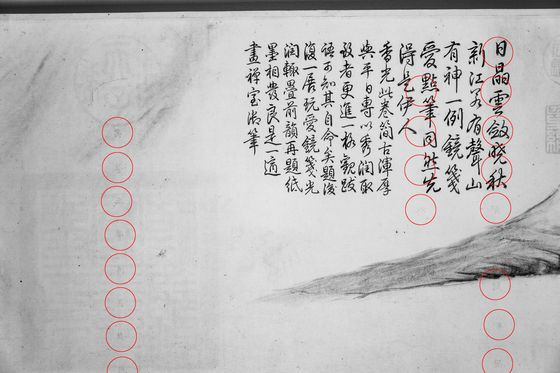 日晶雲斂晓秋
新江若有聲山
有神一例鏡箋
愛點筆同能先
得是伊人
香光此卷簡古渾厚
與平日專以秀潤取
致者更進一格觀跋
語可知其自命矣題後
復一展玩愛鏡箋光
潤輒疊前韻再題紙
墨相發良是一適
畫禪室御筆